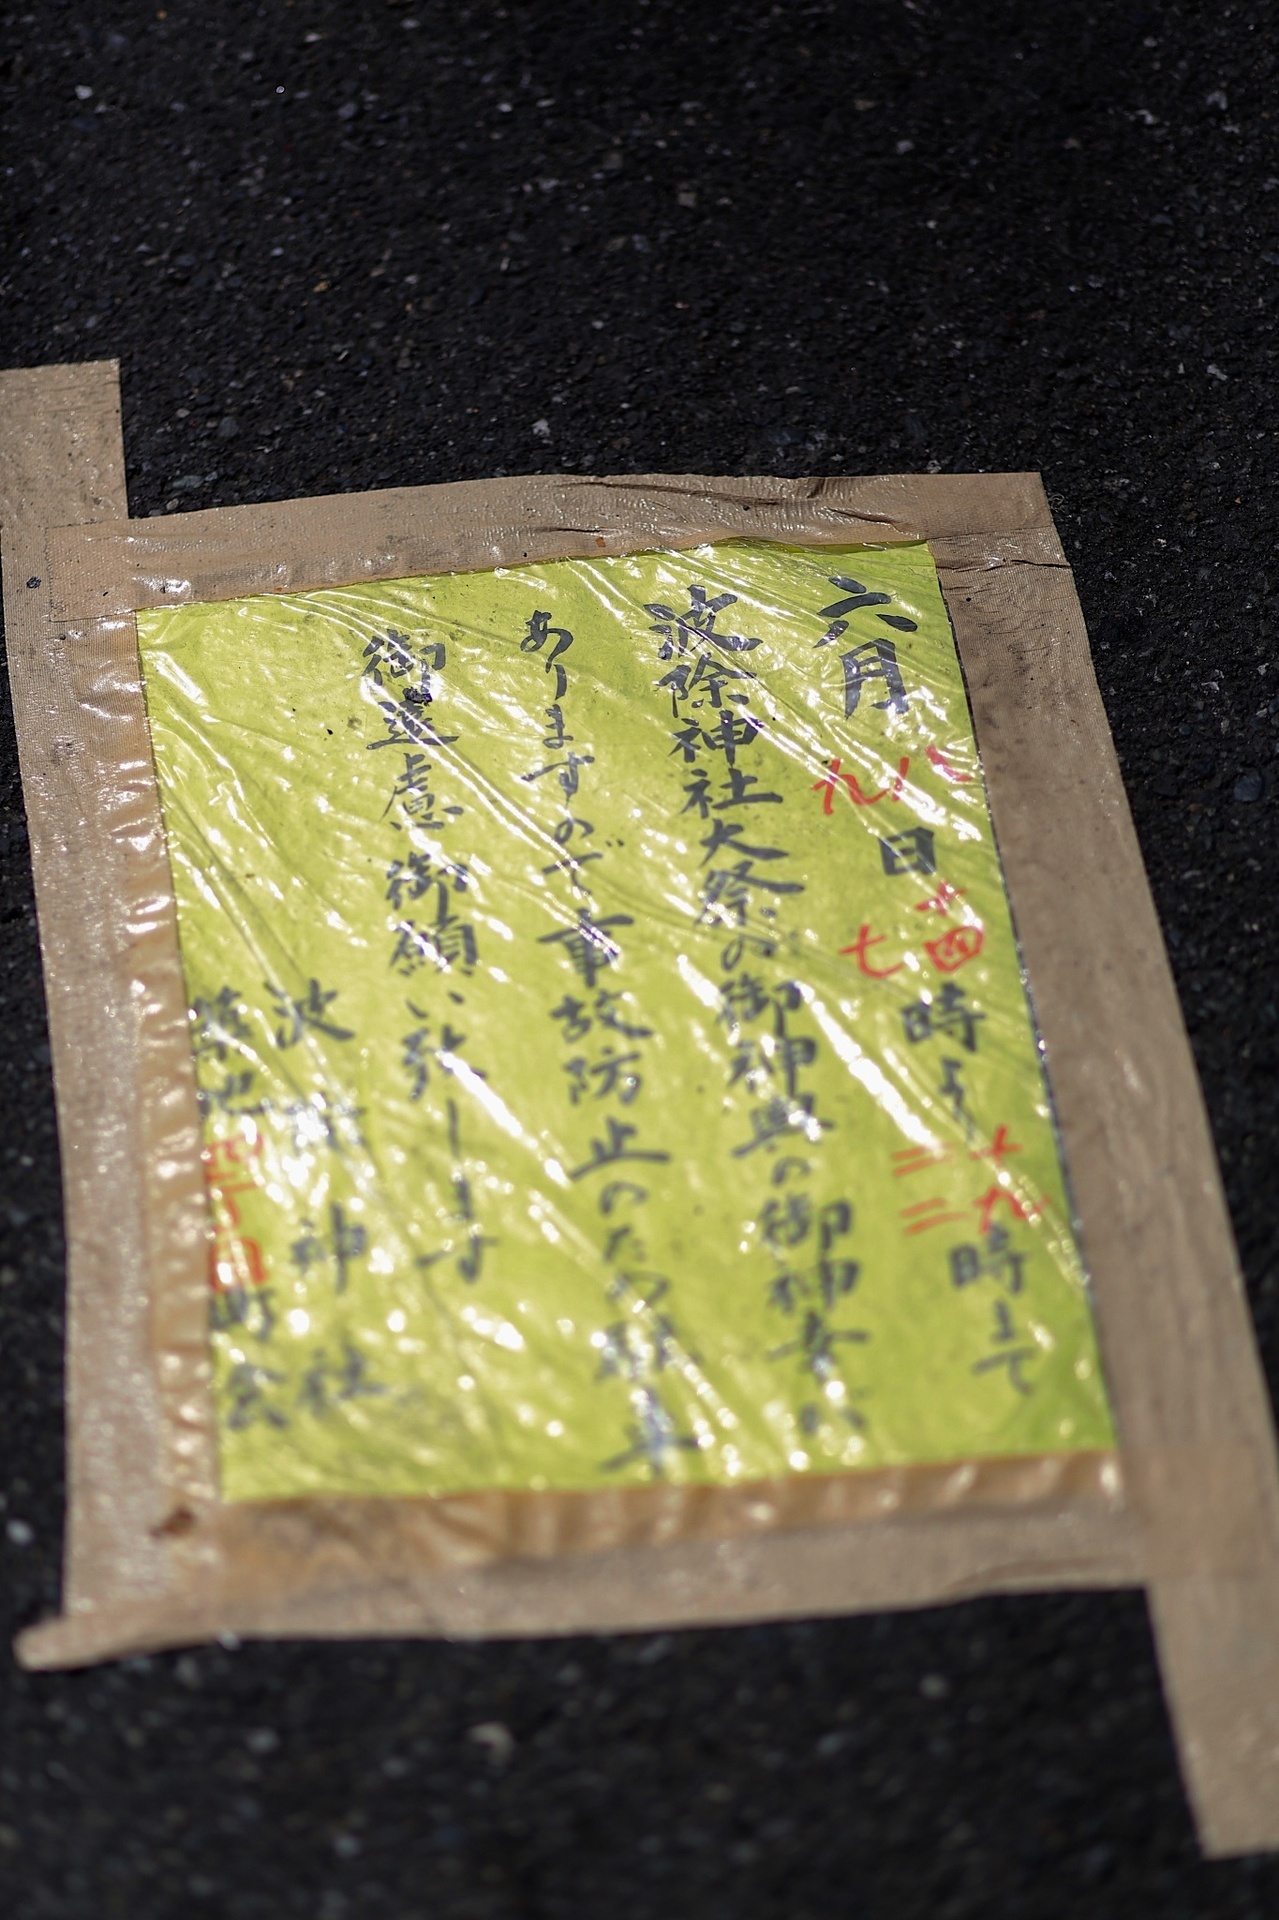 六月八九日十四七時より十九二二時まで
波除神社大祭の御神輿の御神幸が
ありますので事故防止のため駐車
御遠慮御願い致します
波除神社
築地四丁目町会